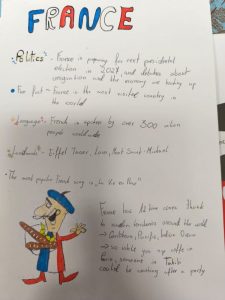 FRANCE
Politics - France is preparing for next presidental
election in 2027 and debates about
immigration and the economy are heating up
Fun fact - France is the most visited country in
the world
Language - French is spoken by over 300 milion
people worldwide
Landmarks - Eiffel Tower, Louvre, Mont Saint-Michael
The most popular French song is "La Vie en Rose"
France has 12 time zones thank
to teritories around the world
→ Caribbean, Pacific, Indian Ocean
→ so while you sip coffe in
Paris, someone in Tahiti
could be waking after a party